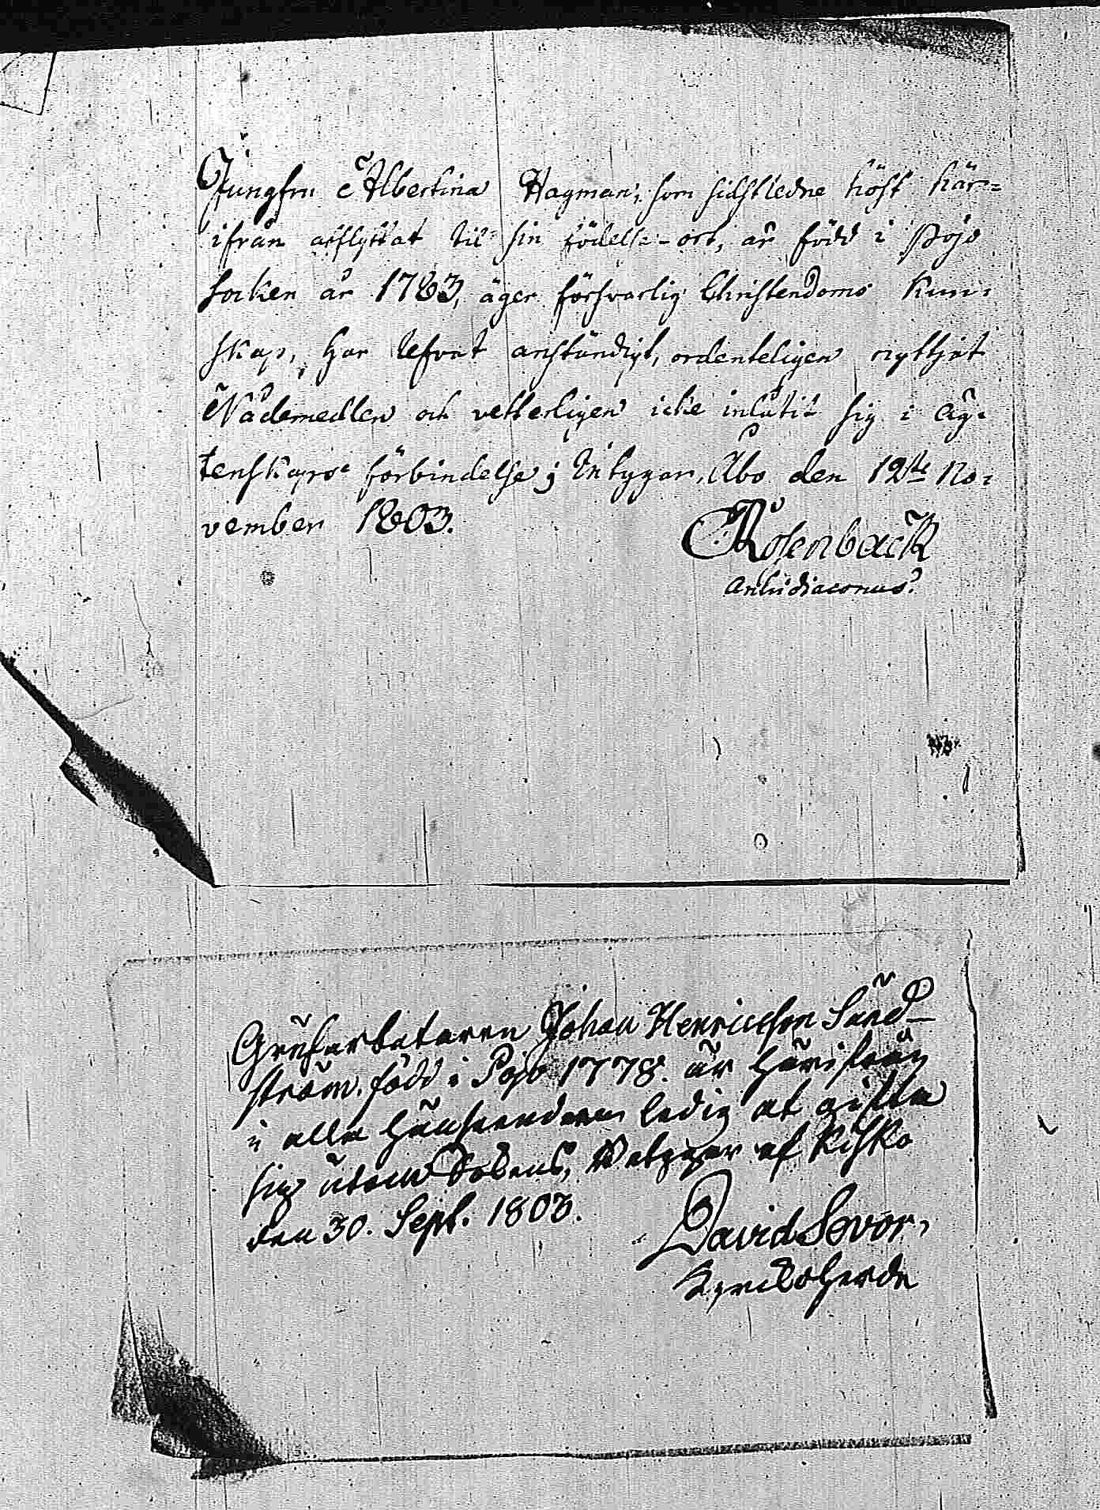 Jungfru Albertina Hagman, som sidstledne höst här=
ifrån afflyttat til sin födelse-ort, är född i Pojo
Socken år 1783, äger försvarlig Christendoms Kun=
skap, har lefvat anständigt, ordenteligen nyttjat
Nådemedlen och vetterligen icke inlåtit sig i äg-
tenskaps förbindelse; Intygar, Åbo den 12te No=
vember 1803.
CRosenback
Archidiaconus.
Grufarbetaren Johan Henricsson Sand-
ström, född i Pojo 1778. är härifrån
i alla hänseenden ledig at gifta
sig utom Sokens, af Kisko
den 30. Sept. 1803.
David Sevon,
Kyrckoherde